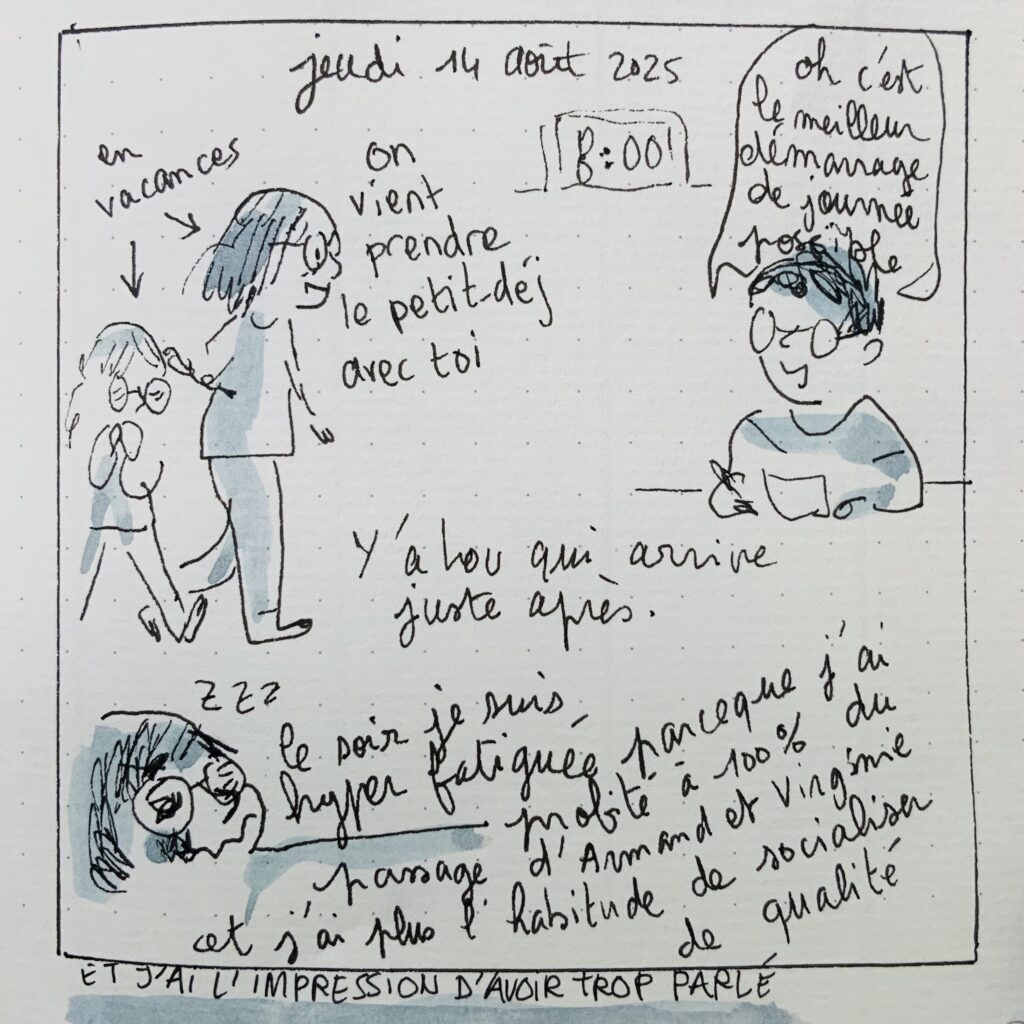 jeudi 14 août 2025
en
vacances
on
vient
prendre
le petit-déj
avec toi
8:00
oh c'est
le meilleur
démarrage
de journée
possible
Y'a Lou qui arrive
juste après.
ZZZ
le soir je suis
hyper fatiguée parceque j'ai
profité à 100% du
passage d'Armand et Virginie
cet j'ai plus l'habitude de socialiser
de qualité
ET J'AI L'IMPRESSION D'AVOIR TROP PARLÉ